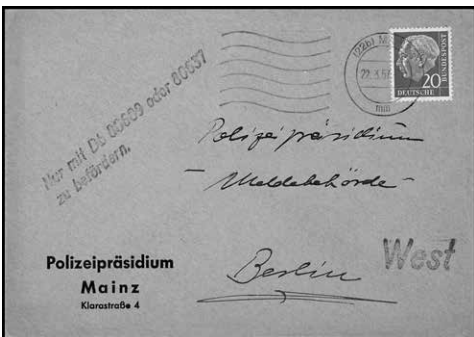 Nur mit Db 80609 oder 80637
zu befördern.
(22b) M
22.3.56
mm
20
DEUTSCHE
BUNDESPOST
Polizeipräsidium
- Meldebehörde -
Berlin
West
Polizeipräsidium
Mainz
Klarastraße 4